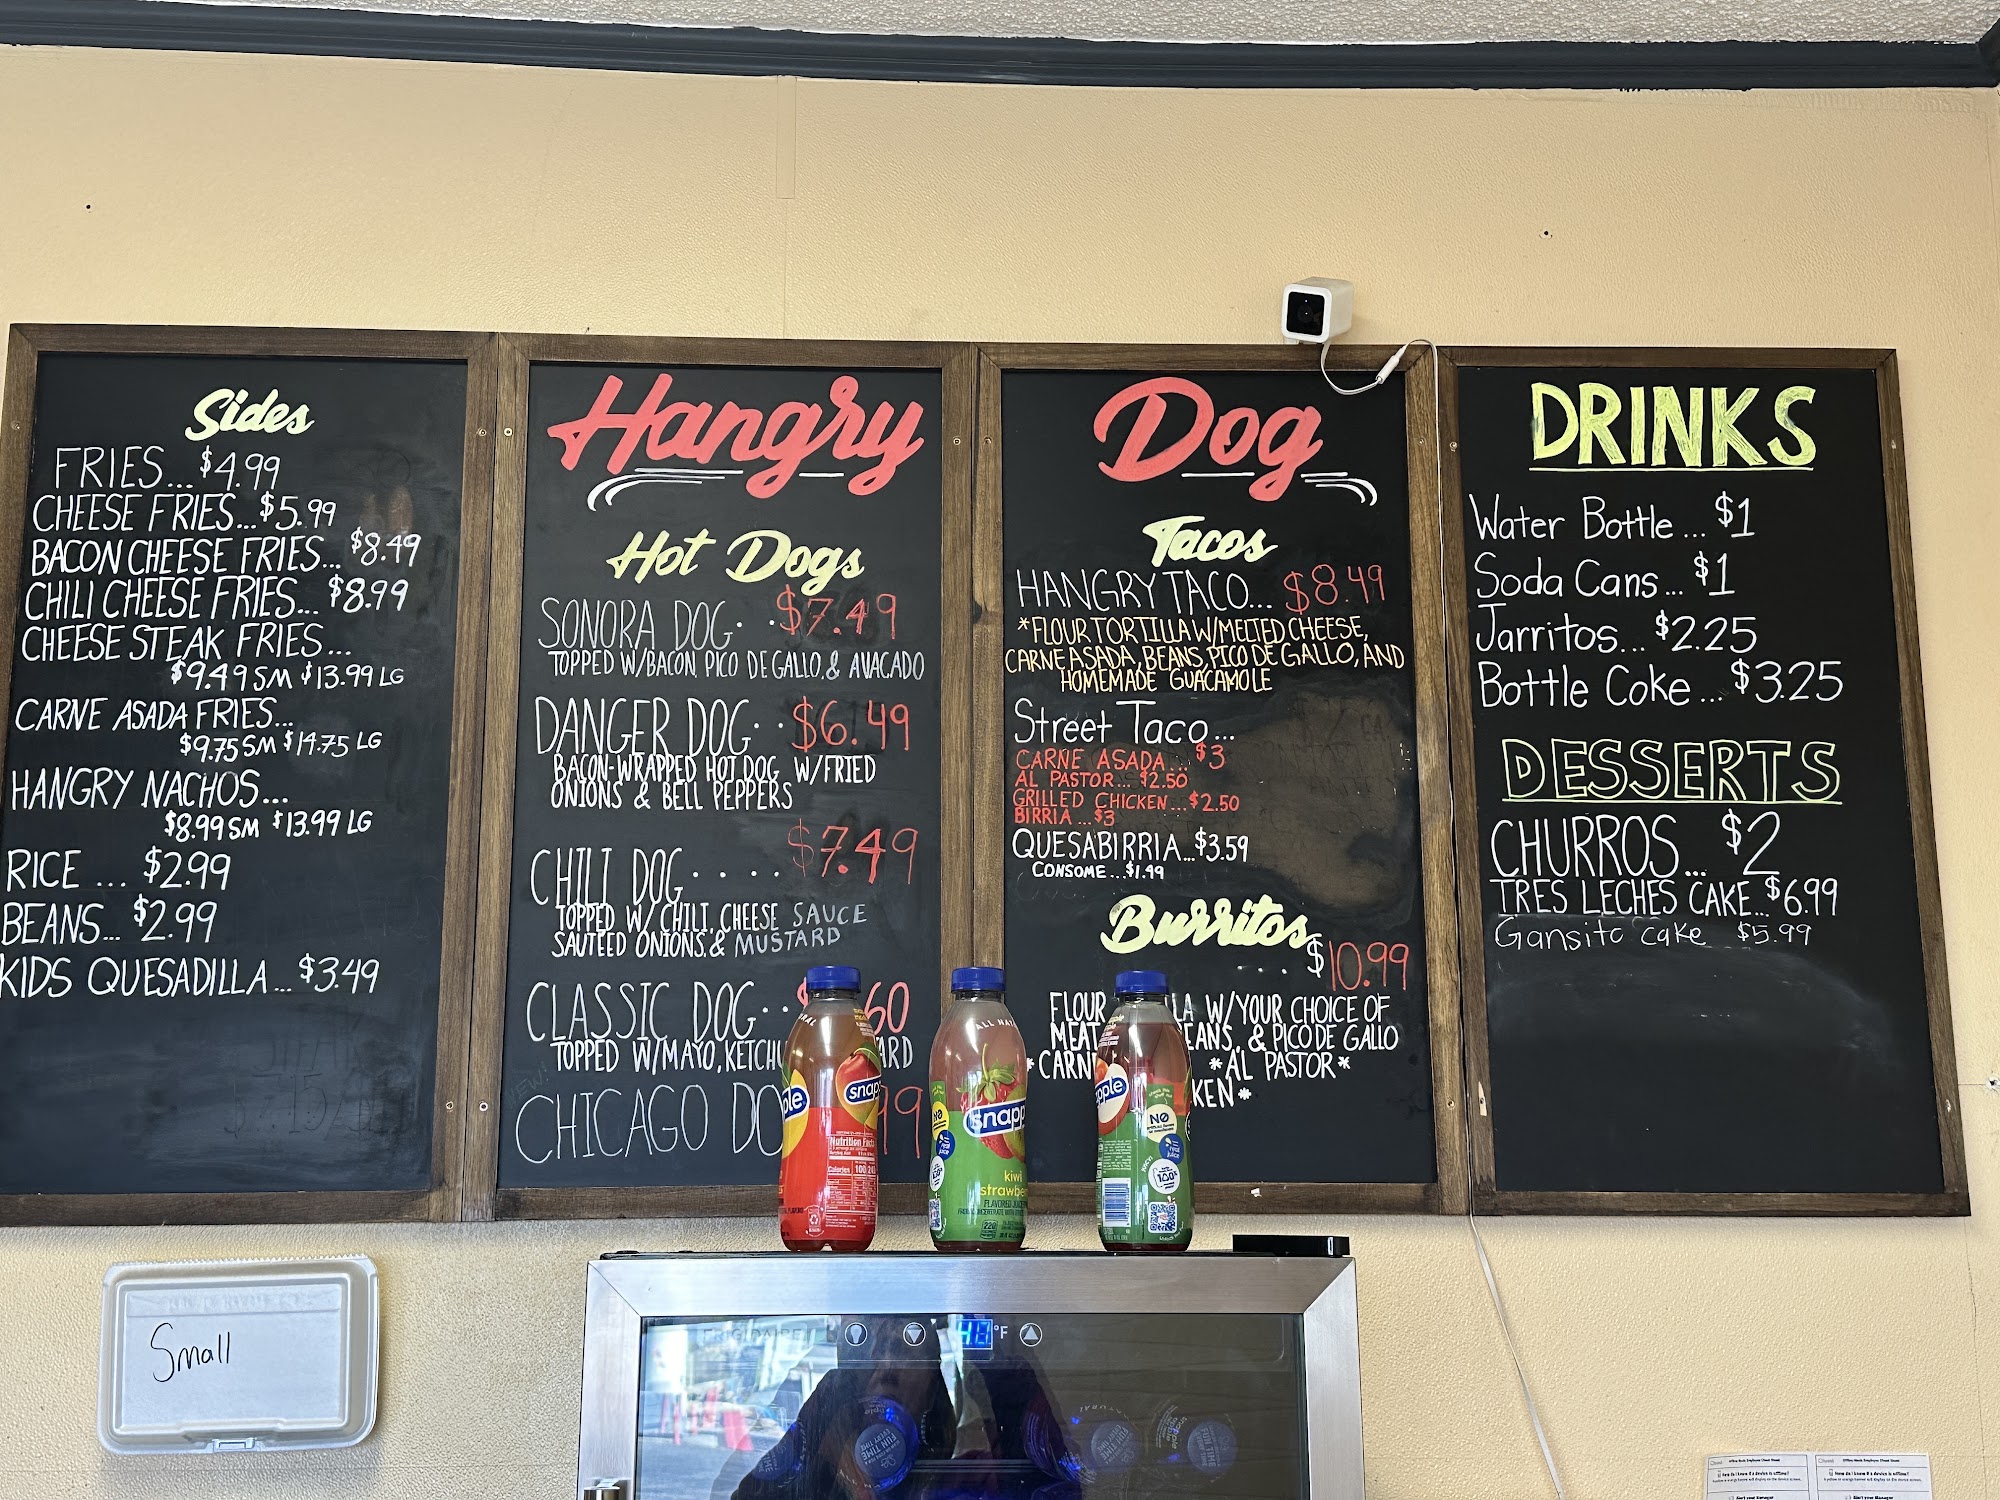 Sides
FRIES...$4.99
CHEESE FRIES...$5.99
BACON CHEESE FRIES... $8.49
CHILI CHEESE FRIES... $8.99
CHEESE STEAK FRIES...
$9.49 SM $13.99 LG
CARNE ASADA FRIES...
$9.75 SM $14.75 LG
HANGRY NACHOS...
$8.99 SM $13.99 LG
RICE ... $2.99
BEANS... $2.99
KIDS QUESADILLA... $3.49
Hangry
Hot Dogs
SONORA DOG. . $7.49
TOPPED W/BACON, PICO DE GALLO, & AVACADO
DANGER DOG. . $6.49
BACON-WRAPPED HOT DOG W/FRIED
ONIONS & BELL PEPPERS
$7.49
CHILI DOG. . . . .
TOPPED W/ CHILI, CHEESE SAUCE
SAUTEED ONIONS, & MUSTARD
CLASSIC DOG. . 60
TOPPED W/MAYO, KETCHU ARD
CHICAGO DO 99
Dog
Tacos
HANGRY TACO... $8.49
*FLOUR TORTILLA W/MELTED CHEESE,
CARNE ASADA, BEANS, PICO DE GALLO, AND
HOMEMADE GUACAMOLE
Street Taco...
CARNE ASADA... $3
AL PASTOR... $2.50
GRILLED CHICKEN...$2.50
BIRRIA...$3
QUESABIRRIA...$3.59
CONSOME...$1.49
Burritos
... $10.99
FLOUR LA W/YOUR CHOICE OF
MEAT EANS, & PICO DE GALLO
*CARN *AL PASTOR*
KEN*
DRINKS
Water Bottle... $1
Soda Cans... $1
Jarritos... $2.25
Bottle Coke... $3.25
DESSERTS
CHURROS... $2
TRES LECHES CAKE...$6.99
Gansito cake $5.99
ple
snap
Nutrition Facts
Calories 100
ALL NAT
snapp
kiwi
strawbe
FLAVORED JUICE
220
pple
NO
real juice
100%
Small
FRIGIDAIRE
°F
FUN TIME